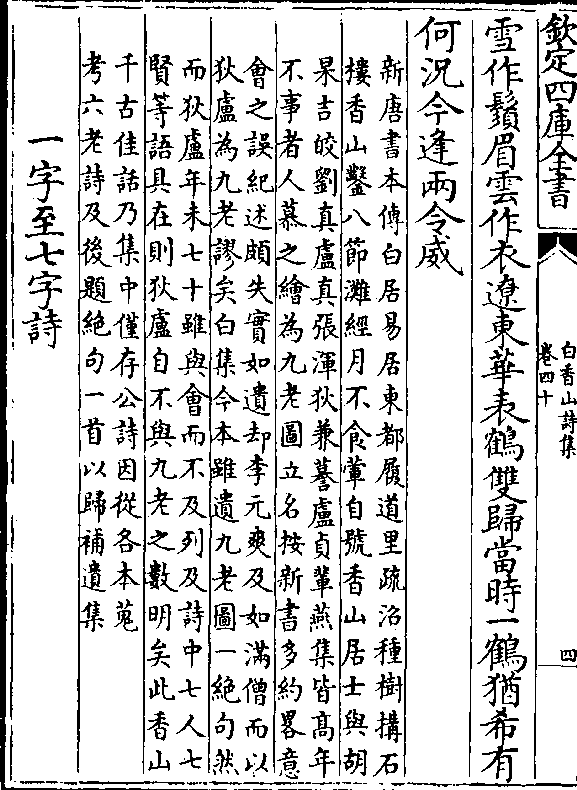 欽定四庫全書
白香山詩集
卷四十
四
雪作鬚眉雲作衣遼東華表鶴雙歸當時一鶴猶希有
何況今逢兩令威
新唐書本傳白居易居東都履道里疏沼種樹搆石
樓香山鑿八節灘經月不食葷自號香山居士與胡
杲吉皎劉真盧真張渾狄兼謩盧貞輩燕集皆髙年
不事者人慕之繪為九老圖立名按新書多約畧意
會之誤紀述頗失實如遺却李元爽及如滿僧而以
狄盧為九老謬矣白集今本雖遺九老圖一絶句然
而狄盧年未七十雖與會而不及列及詩中七人七
賢等語具在則狄盧自不與九老之數明矣此香山
千古佳話乃集中僅存公詩因從各本蒐
考六老詩及後題絶句一首以歸補遺集
一字至七字詩